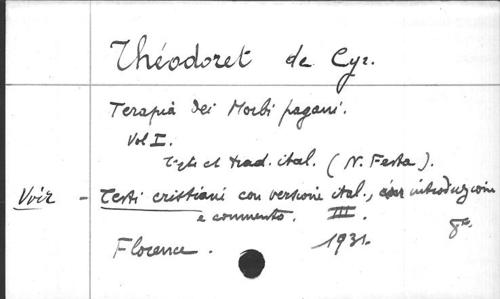 Théodoret de Cyr.
Terapia dei Morbi pagani.
Vol I.
Texte et trad. ital. (N. Festa).
Voir - Testi cristiani con versione ital., introduzione
e commento. III.
Florence. 1931.